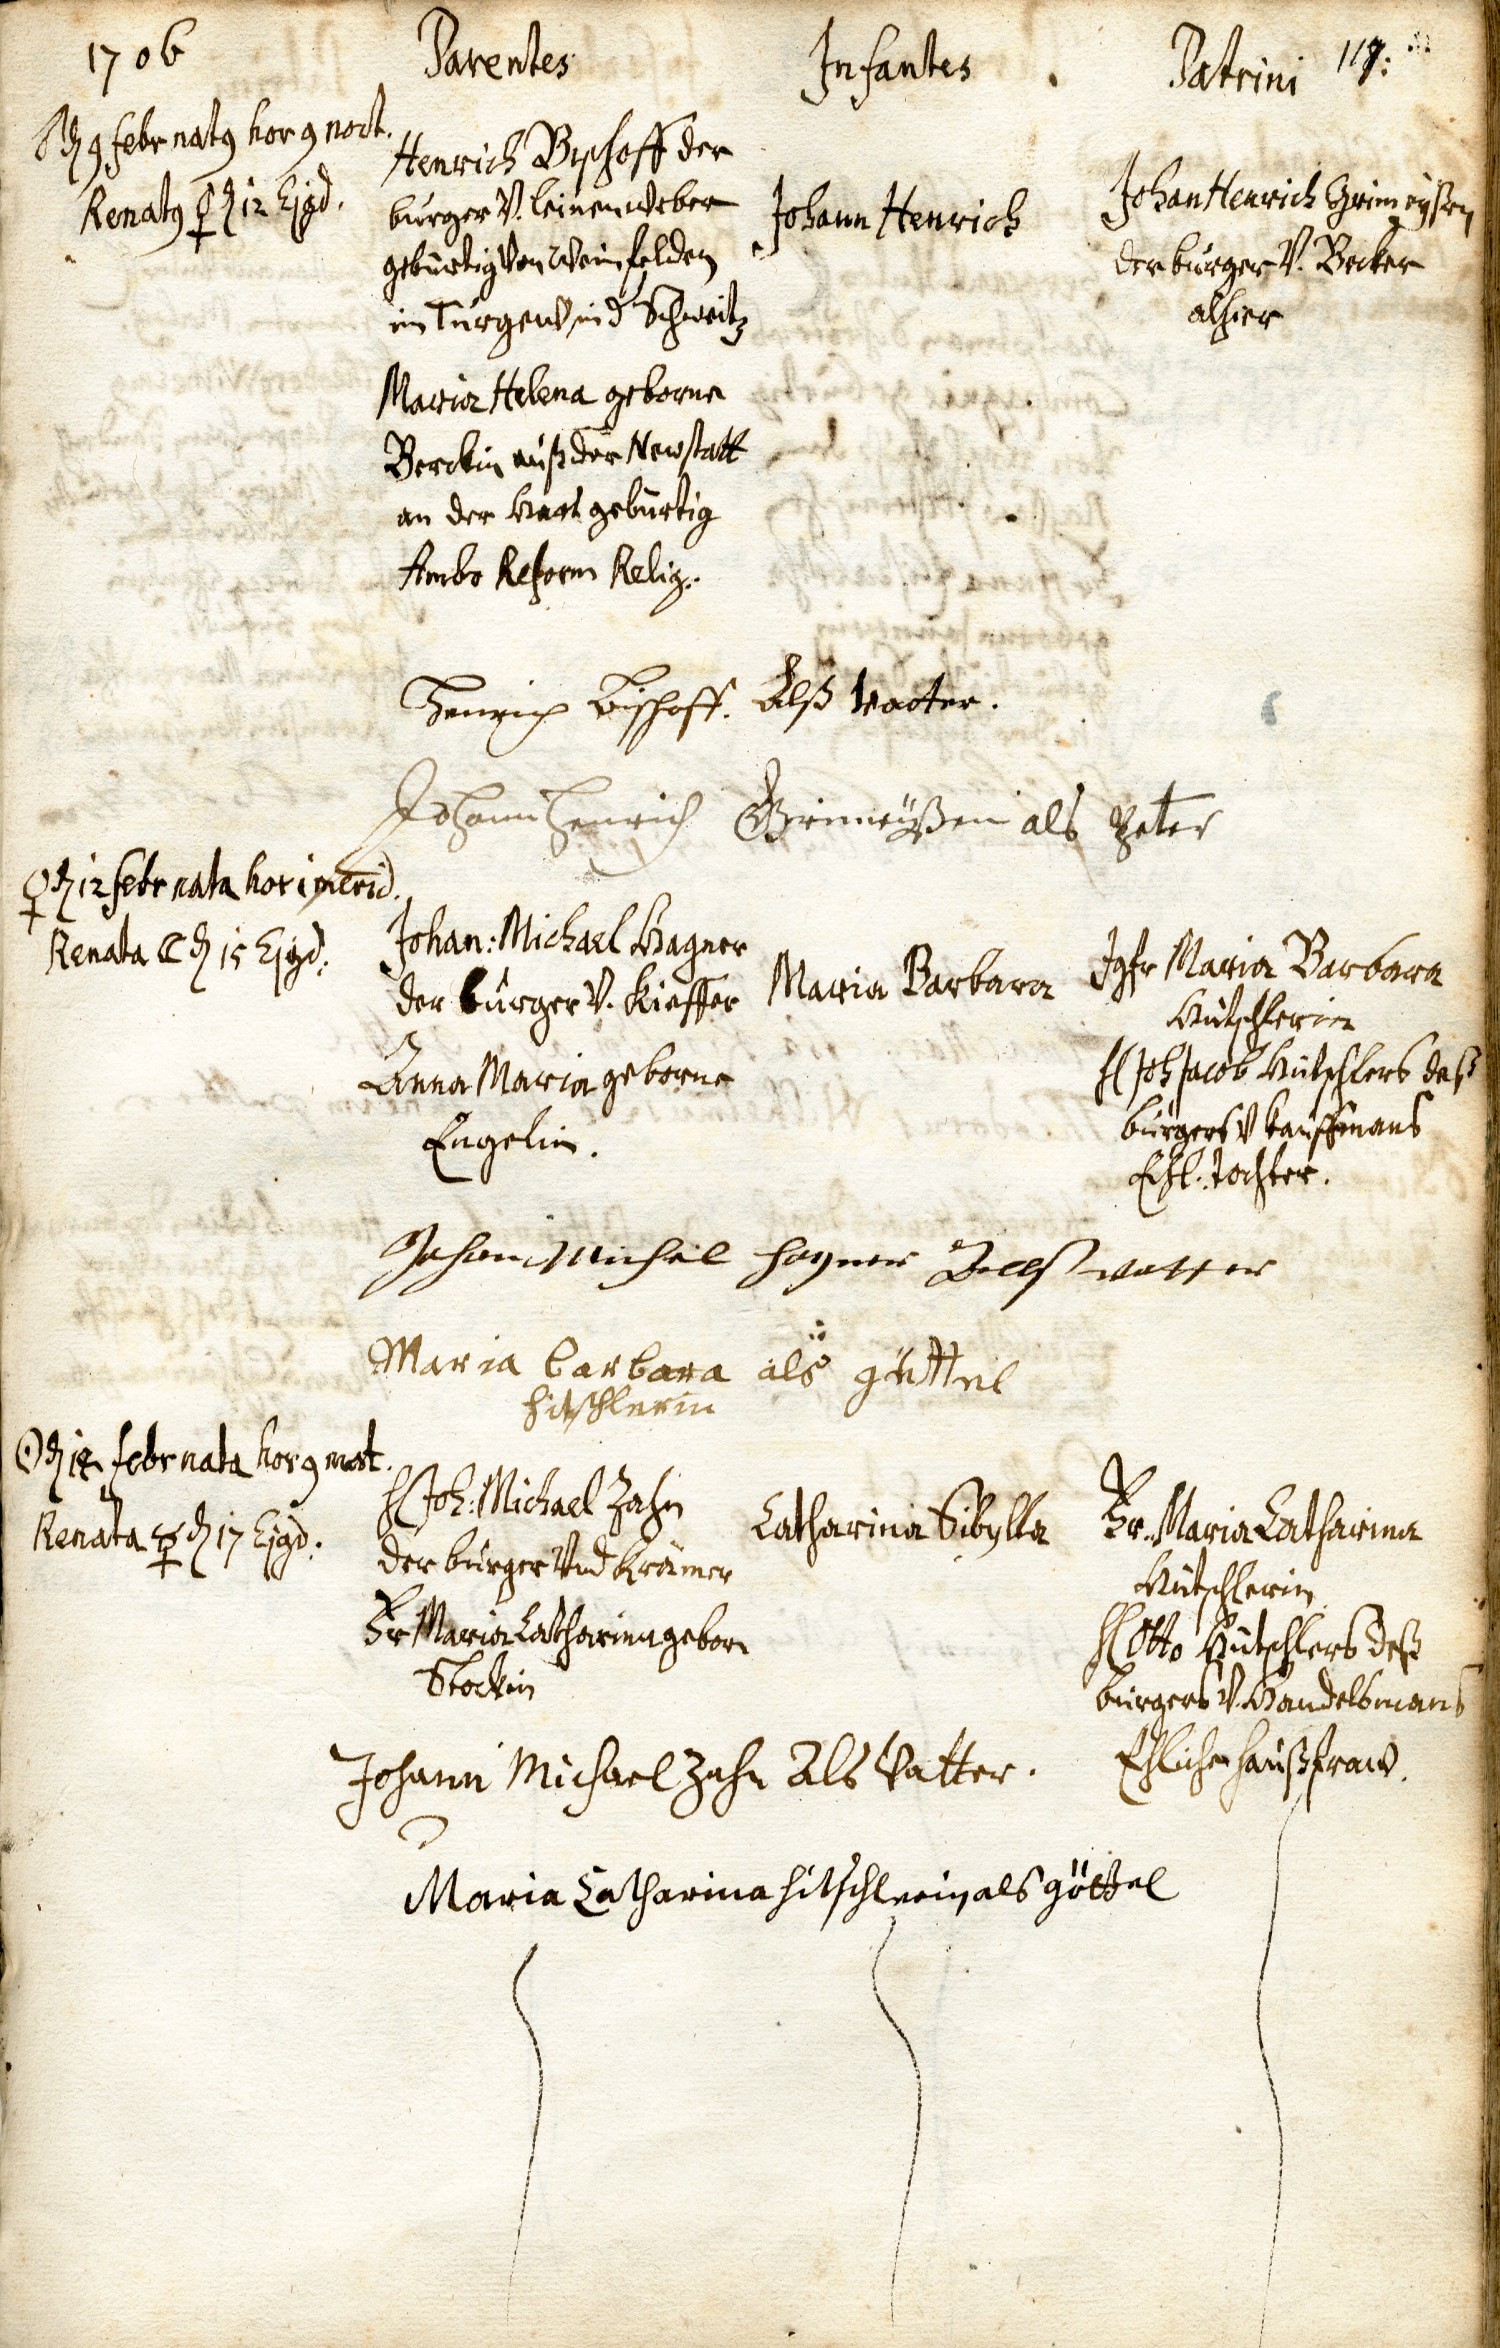 1706
Parentes
Infantes
Patrini
117:
♂ d 9 febr natq hor 9 noct.
Renatq ♀ d 12 Ejqd.
Henrich Bischoff der
burger V. leinenweber
gebürtig von Weinfelden
im Turgew in d Schweitz
Maria Helena geborne
Berckin auß der Newstatt
an der Hart gebürtig
Ambo Reform Relig.
Johann Henrich
Johan Henrich Grimeyßen
der burger V. Becker
alhier
Henrich Bischoff. Alß Vatter.
Johann Henrich Grimeüßen als Peter
♀ d 12 febr nata hor 1 merid.
Renata ☾ d 15 Ejqd.
Johan: Michael Hagner
der burger V. Kieffer
Anna Maria geborne
Engelin.
Maria Barbara
Jgfr Maria Barbara
Hütschlerin
H Joh Jacob Hütschlers deß
burgers V kauffmans
Ehl. Tochter.
Johan Michel Hagner Alß vatter
Maria barbara als göttel
hitschlerin
☉ d 14 febr nata hor 9 mat.
Renata ☿ d 17 Ejqd.
H Joh: Michael Zahn
der burger Vnd Krämer
Fr Maria Catharina geborn
Stockin
Catharina Sibylla
Fr. Maria Catharina
Hütschlerin
H Otto Hütschlers deß
burgers V. Handelsmans
Ehliche haußfraw.
Johann Michael Zahn Als Vatter.
Maria Catharina hitschlerin als göttel